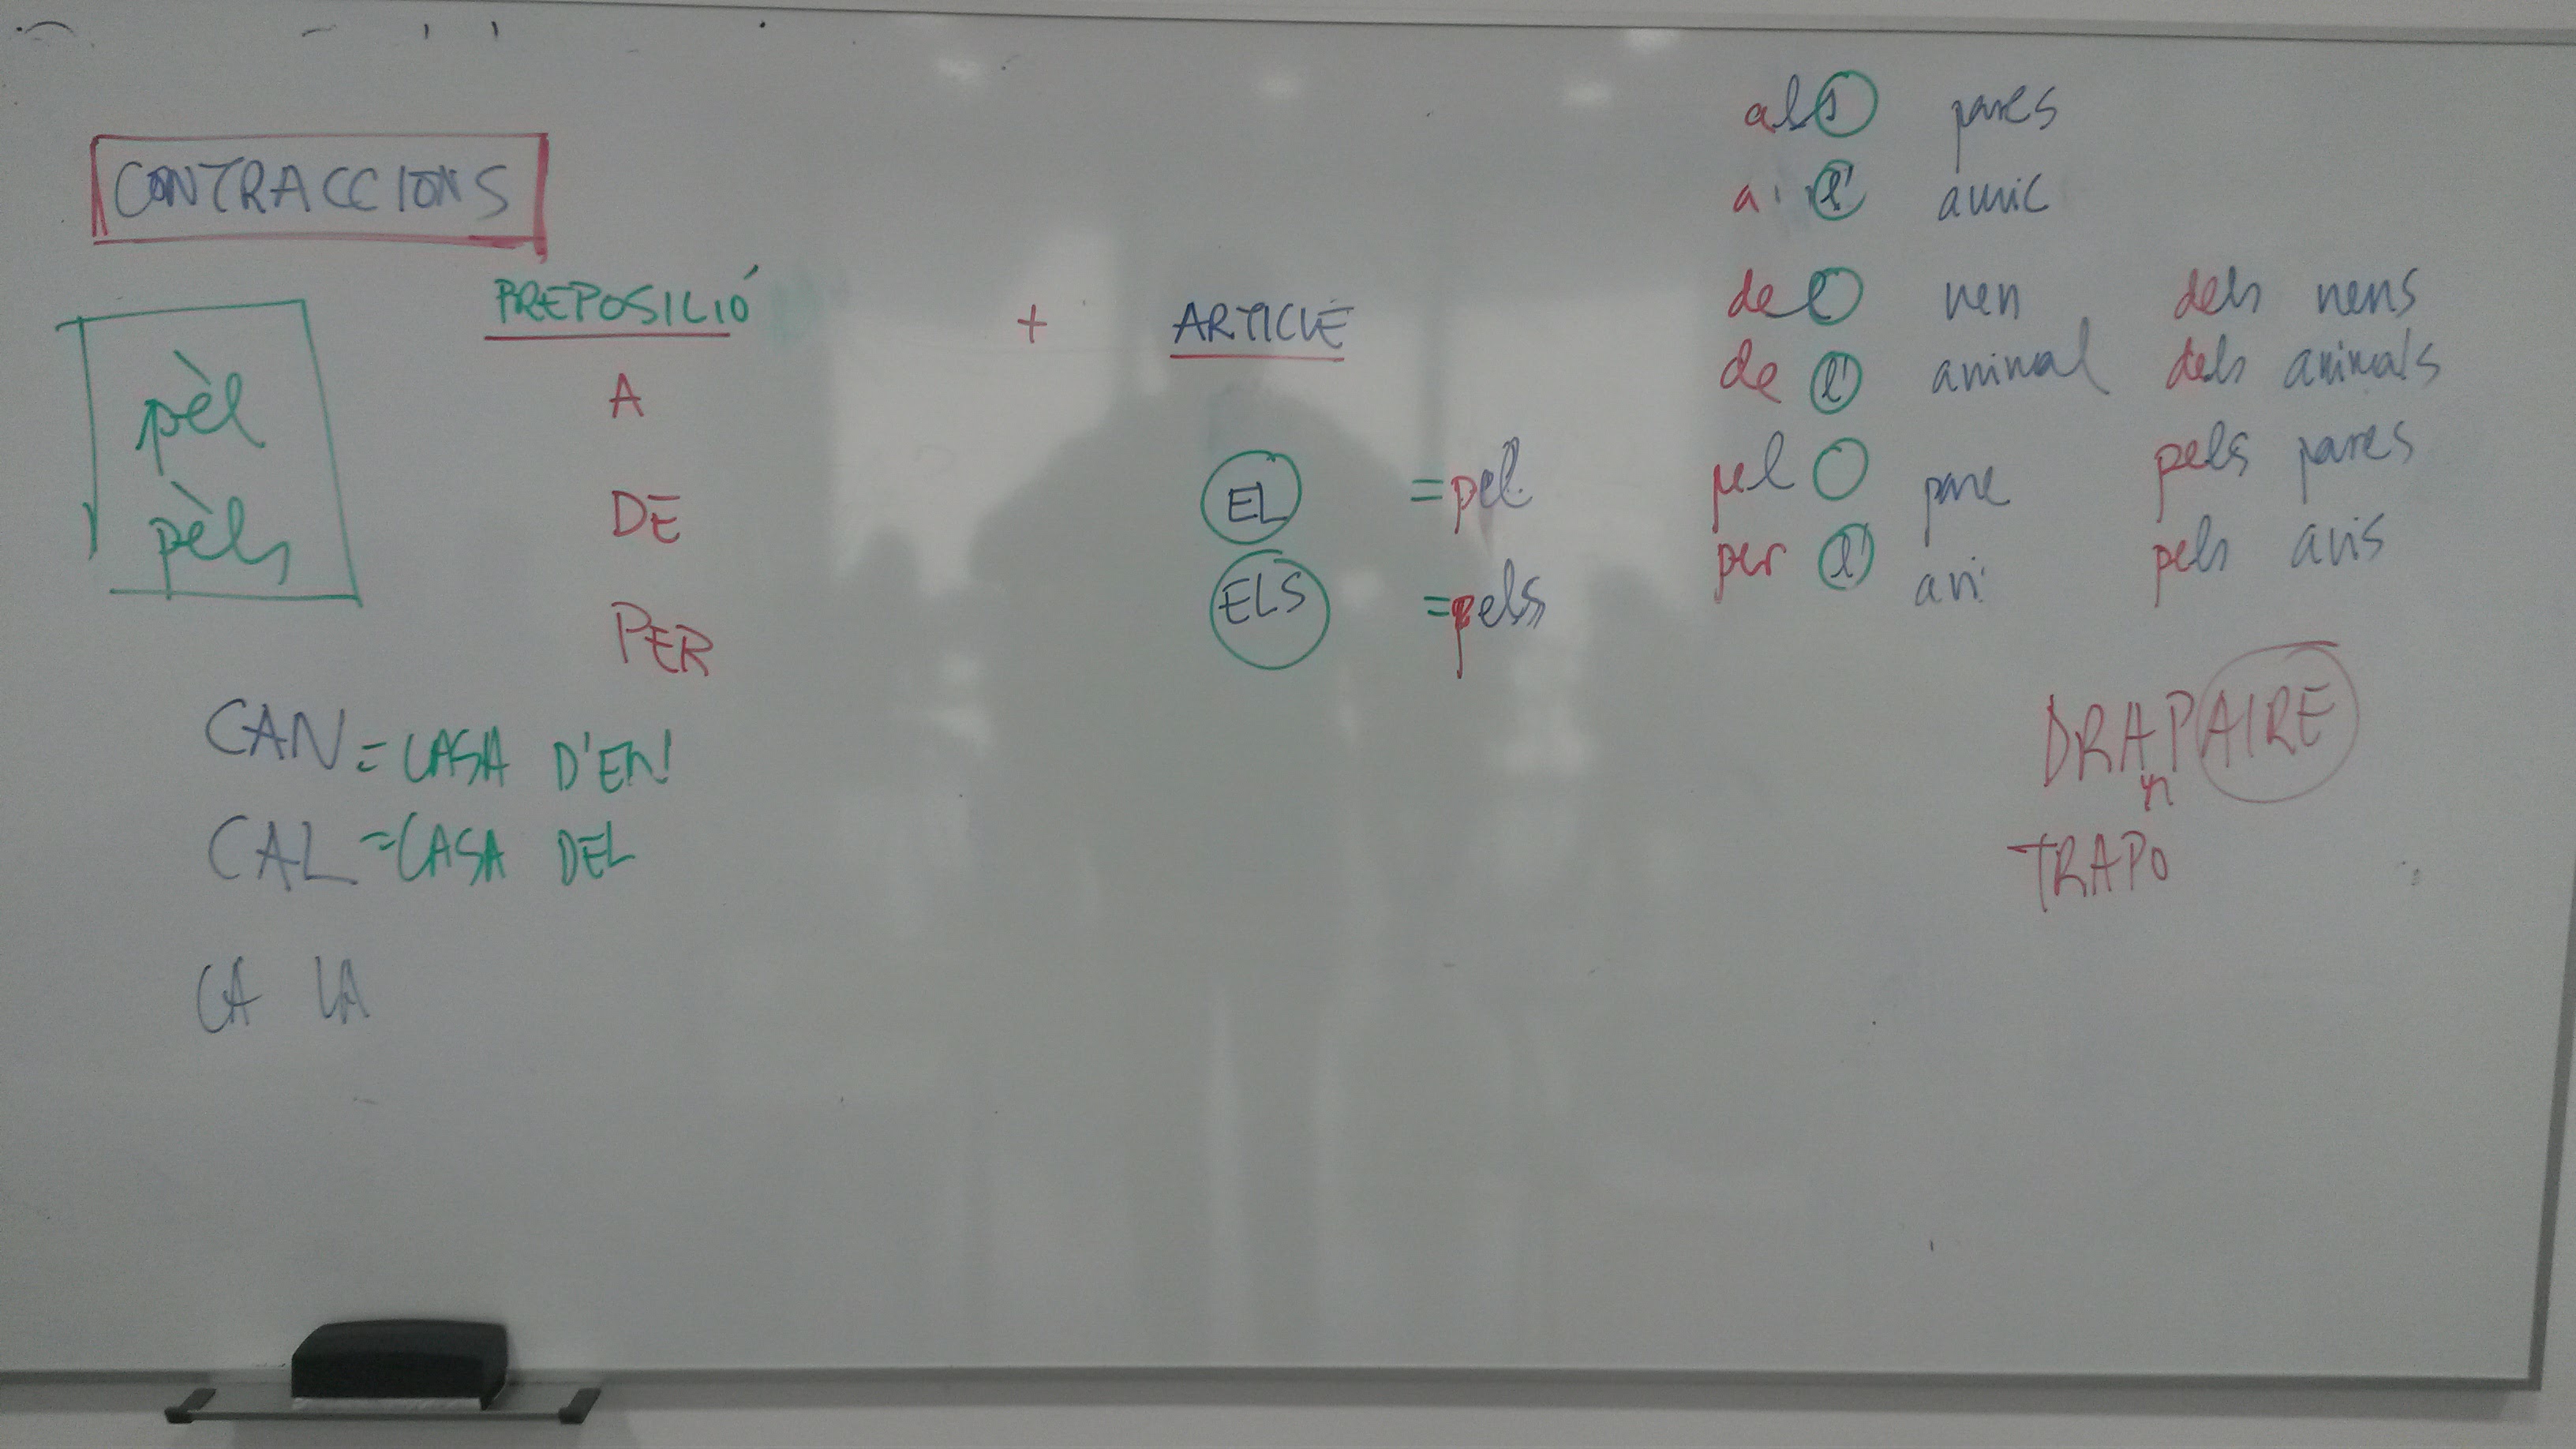 CONTRACCIONS
PREPOSICIÓ + ARTICLE
A
DE
PER
EL = pel
ELS = pels
pèl
pèls
CAN = CASA D'EN
CAL = CASA DEL
CA LA
als pares
a l' amic
del nen dels nens
de l' animal dels animals
pel pare pels pares
per l' avi pels avis
DRAPAIRE
TRAPO